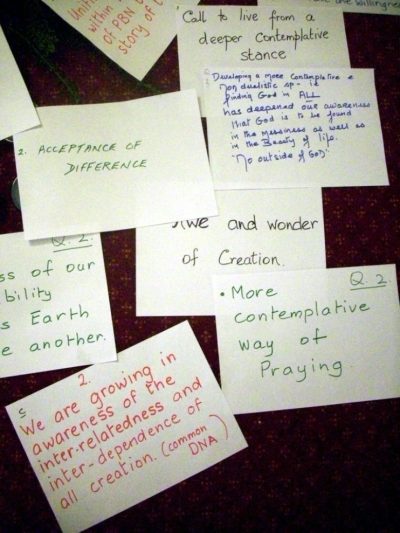 Uniti
within
of PBN
story of
Call to live from a
deeper Contemplative
stance
Developing a more Contemplative &
non dualistic sp- ie
finding God in ALL
has deepened our awareness
that God is to be found
in the messiness as well as
in the Beauty of life.
"No outside of God".
2. ACCEPTANCE OF
DIFFERENCE
Awe and wonder
of Creation.
Q. 2.
ss of our
bility
s Earth
e another.
Q. 2.
• More
contemplative
way of
Praying.
2.
We are growing in
awareness of the
inter-relatedness and
inter-dependence of
all creation. (common
DNA)